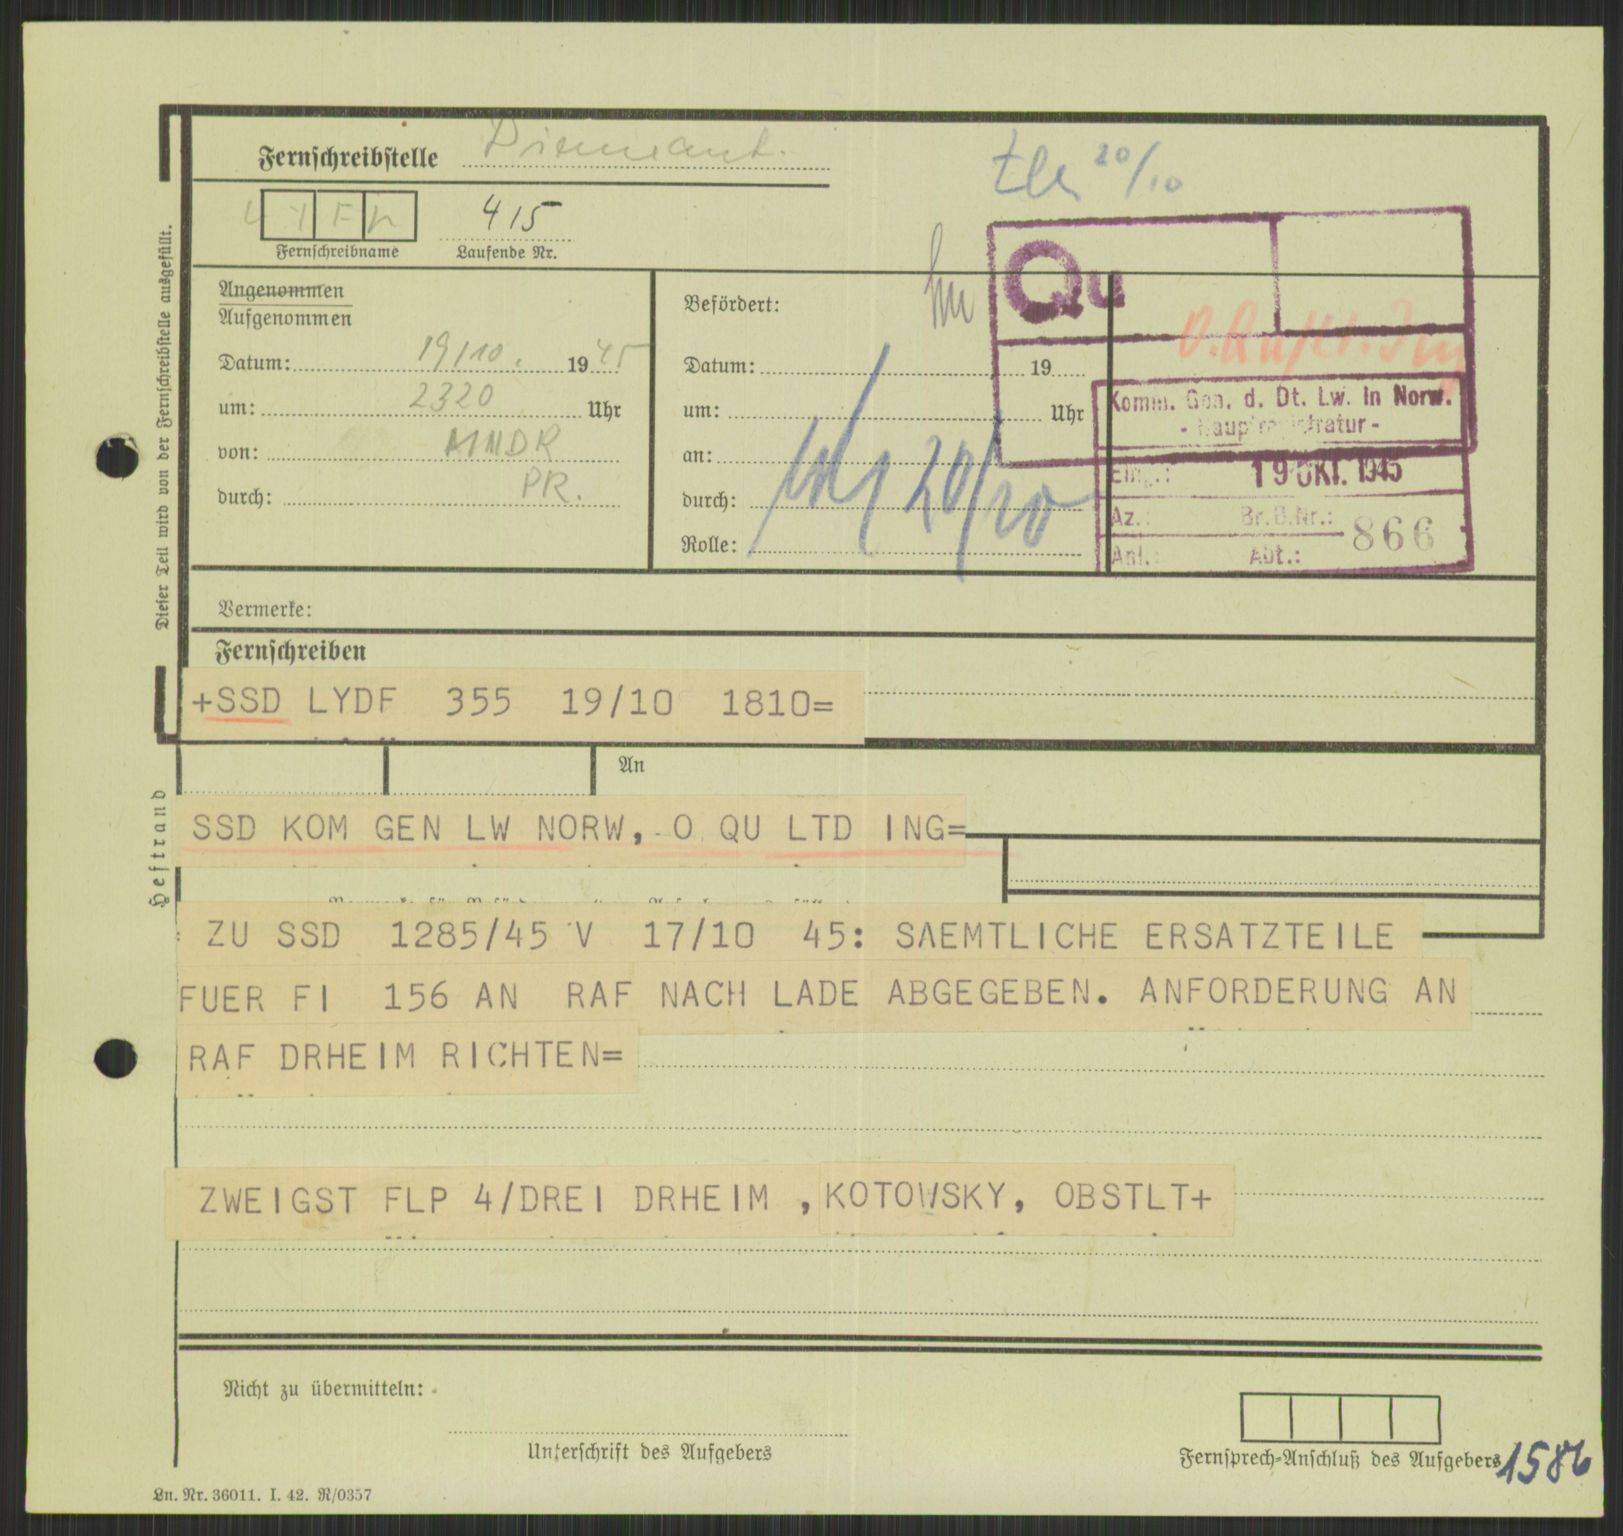 Fernschreibstelle Diemeant.
415
Fernschreibname
Laufende Nr.
20/10
Angenommen
Aufgenommen
Datum: 19/10. 1945
um: 2320 Uhr
von: MMDR
durch: PR.
Befördert:
Datum: 19
um: Uhr
an:
durch:
Rolle:
20/10
Qu
Komm. Gen. d. Dt. Lw. in Norw.
- Hauptregistratur -
Eing.: 19 OKT. 1945
Az.: Br.B.Nr.: 866
Anl.: Abt.:
Dieser Teil wird von der Fernschreibstelle ausgefüllt.
Vermerke:
Fernschreiben
+SSD LYDF 355 19/10 1810=
An
SSD KOM GEN LW NORW, O QU LTD ING=
Heftrand
ZU SSD 1285/45 V 17/10 45: SAEMTLICHE ERSATZTEILE
FUER FI 156 AN RAF NACH LADE ABGEGEBEN. ANFORDERUNG AN
RAF DRHEIM RICHTEN=
ZWEIGST FLP 4/DREI DRHEIM , KOTOWSKY, OBSTLT+
Nicht zu übermitteln:
Unterschrift des Aufgebers
Fernsprech-Anschluß des Aufgebers
1586
Ln. Nr. 36011. I. 42. R/0357